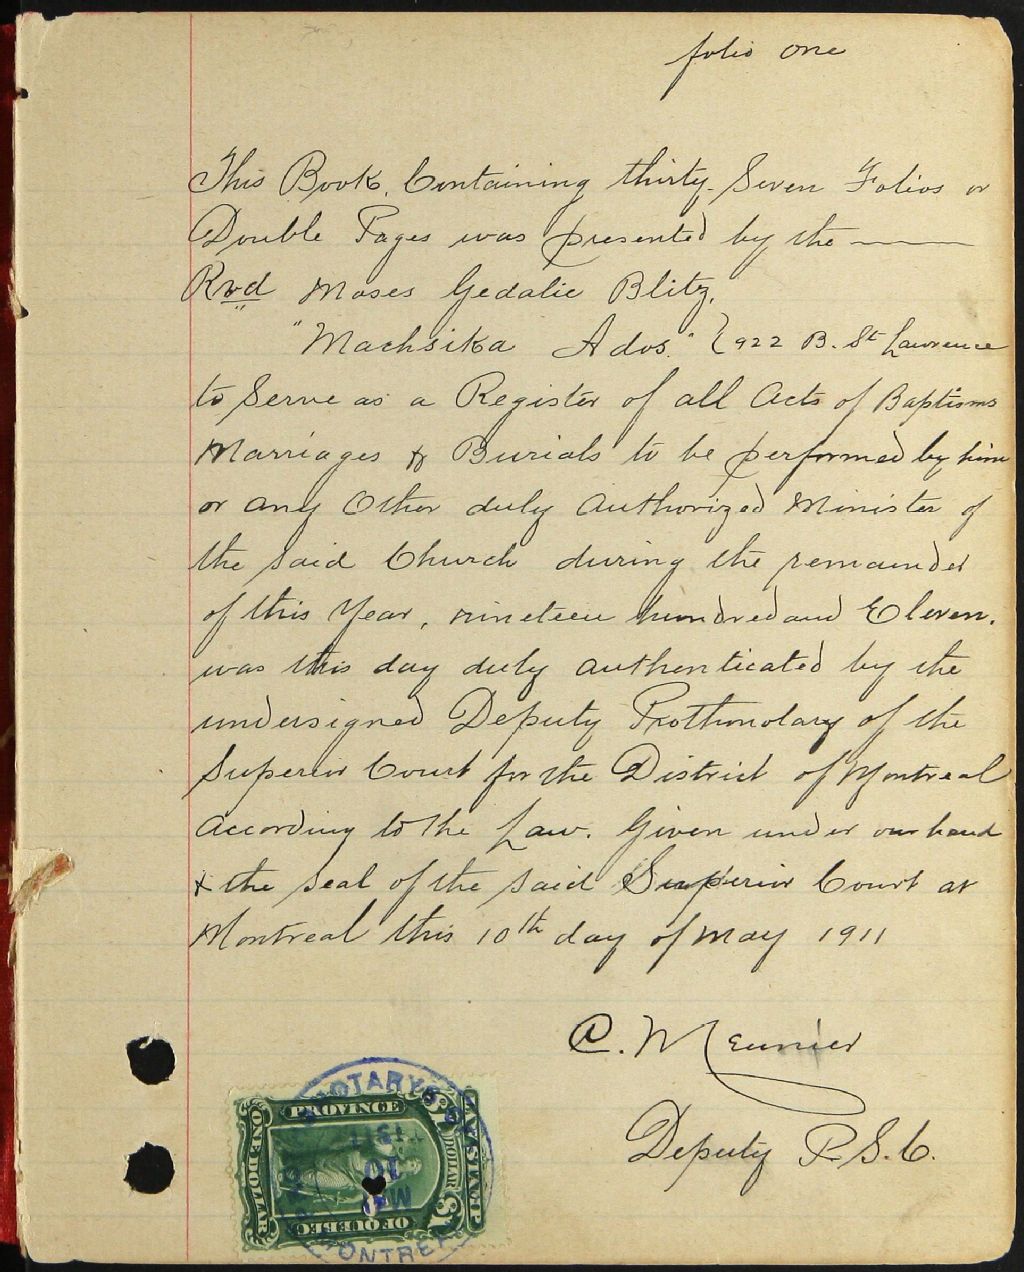 folio one
This Book, Containing thirty-Seven Folios or
Double Pages was presented by the ———
Rvd Moses Gedalie Blitz,
"Machsika Ados." 922 B. St Lawrence
to Serve as a Register of all Acts of Baptisms
Marriages & Burials to be performed by him
or any Other duly Authorized Minister of
the said Church during the remainder
of this Year, nineteen hundred and Eleven.
was this day duly authenticated by the
undersigned Deputy Prothonotary of the
Superior Court for the District of Montreal
According to the Law. Given under our hand
& the seal of the said Superior Court at
Montreal this 10th day of May 1911
Meunier
Deputy P.S.C.
PROVINCE
OF QUEBEC
ONE DOLLAR
DOLLAR
$1
LAW STAMP
MONTREAL
10